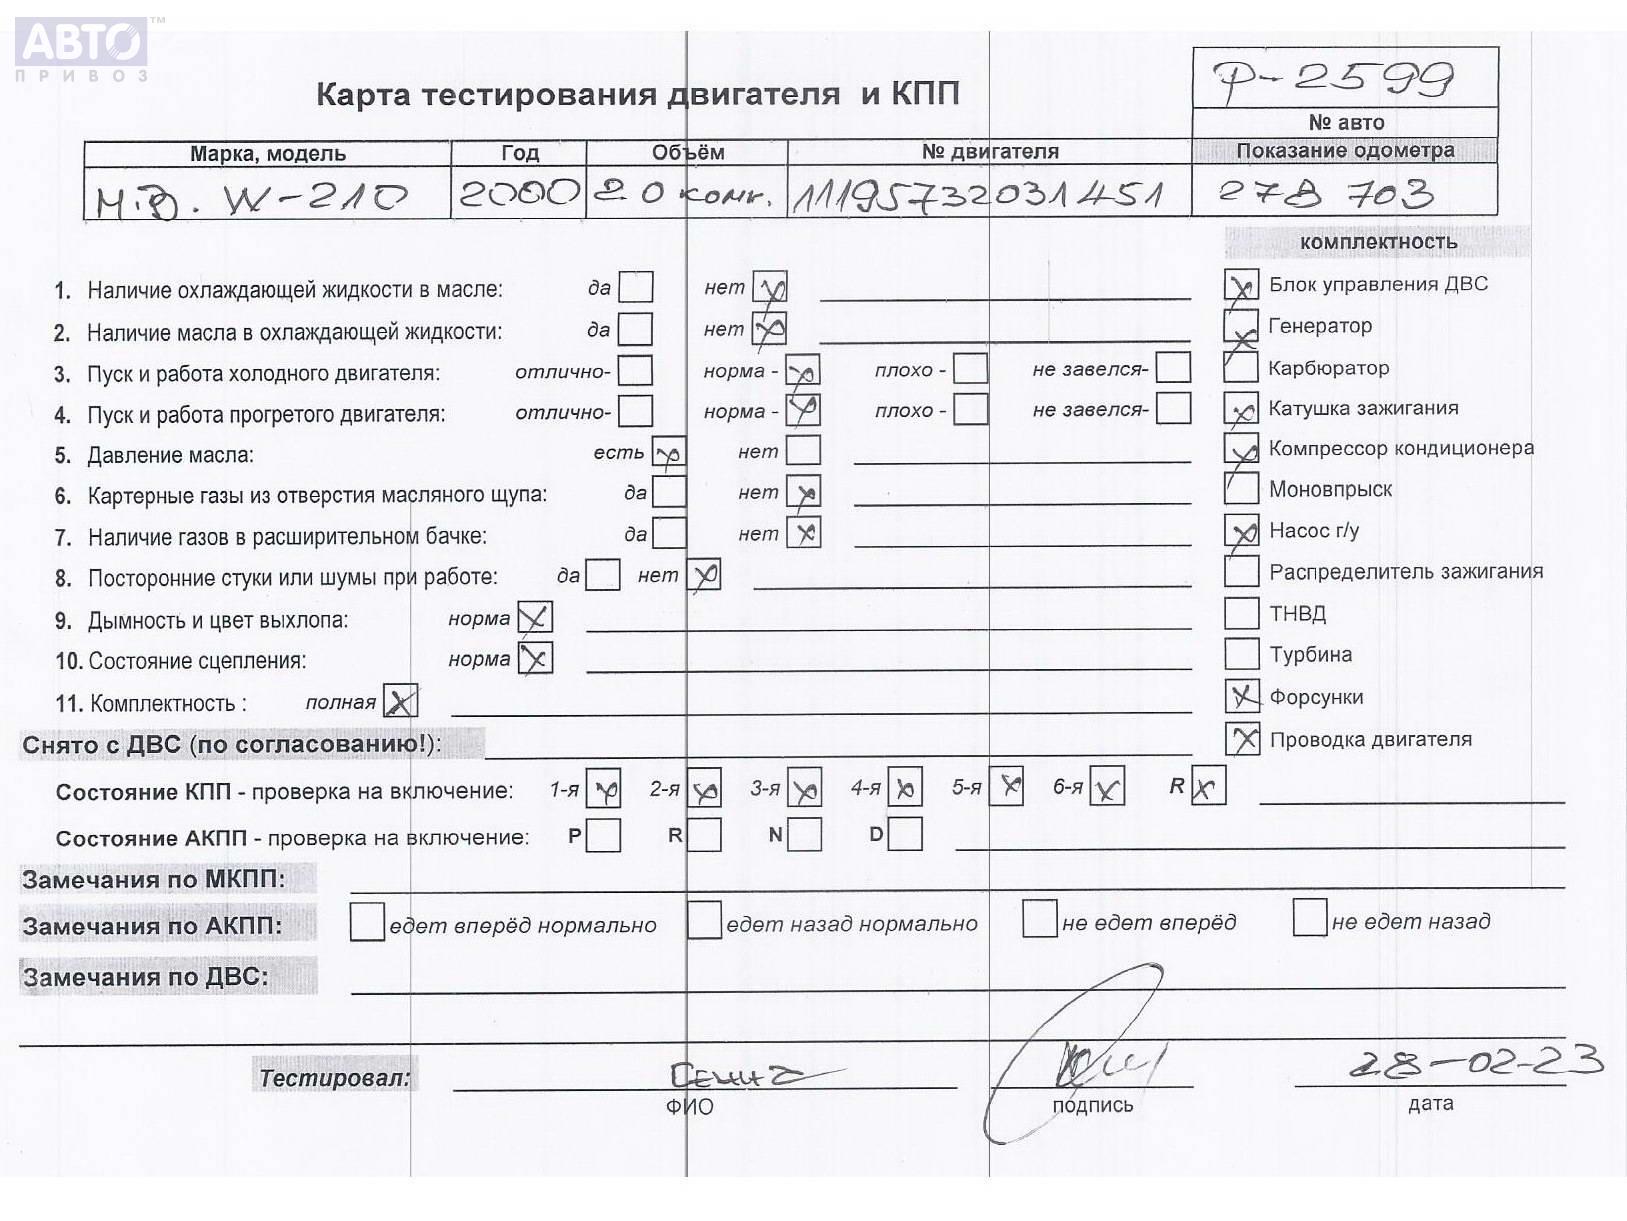 АВТО™
ПРИВОЗ
Карта тестирования двигателя и КПП
Р-2599
№ авто
Марка, модель Год Объём № двигателя Показание одометра
М.Б. W-210 2000 2.0 комп. 11195732031451 278 703
комплектность
1. Наличие охлаждающей жидкости в масле: да нет
Блок управления ДВС
2. Наличие масла в охлаждающей жидкости: да нет
Генератор
3. Пуск и работа холодного двигателя: отлично- норма - плохо - не завелся-
Карбюратор
4. Пуск и работа прогретого двигателя: отлично- норма - плохо - не завелся-
Катушка зажигания
5. Давление масла: есть нет
Компрессор кондиционера
6. Картерные газы из отверстия масляного щупа: да нет
Моновпрыск
7. Наличие газов в расширительном бачке: да нет
Насос г/у
8. Посторонние стуки или шумы при работе: да нет
Распределитель зажигания
9. Дымность и цвет выхлопа: норма
ТНВД
10. Состояние сцепления: норма
Турбина
11. Комплектность : полная
Форсунки
Снято с ДВС (по согласованию!):
Проводка двигателя
Состояние КПП - проверка на включение: 1-я 2-я 3-я 4-я 5-я 6-я R
Состояние АКПП - проверка на включение: P R N D
Замечания по МКПП:
Замечания по АКПП: едет вперёд нормально едет назад нормально не едет вперёд не едет назад
Замечания по ДВС:
Тестировал: 28-02-23
ФИО подпись дата